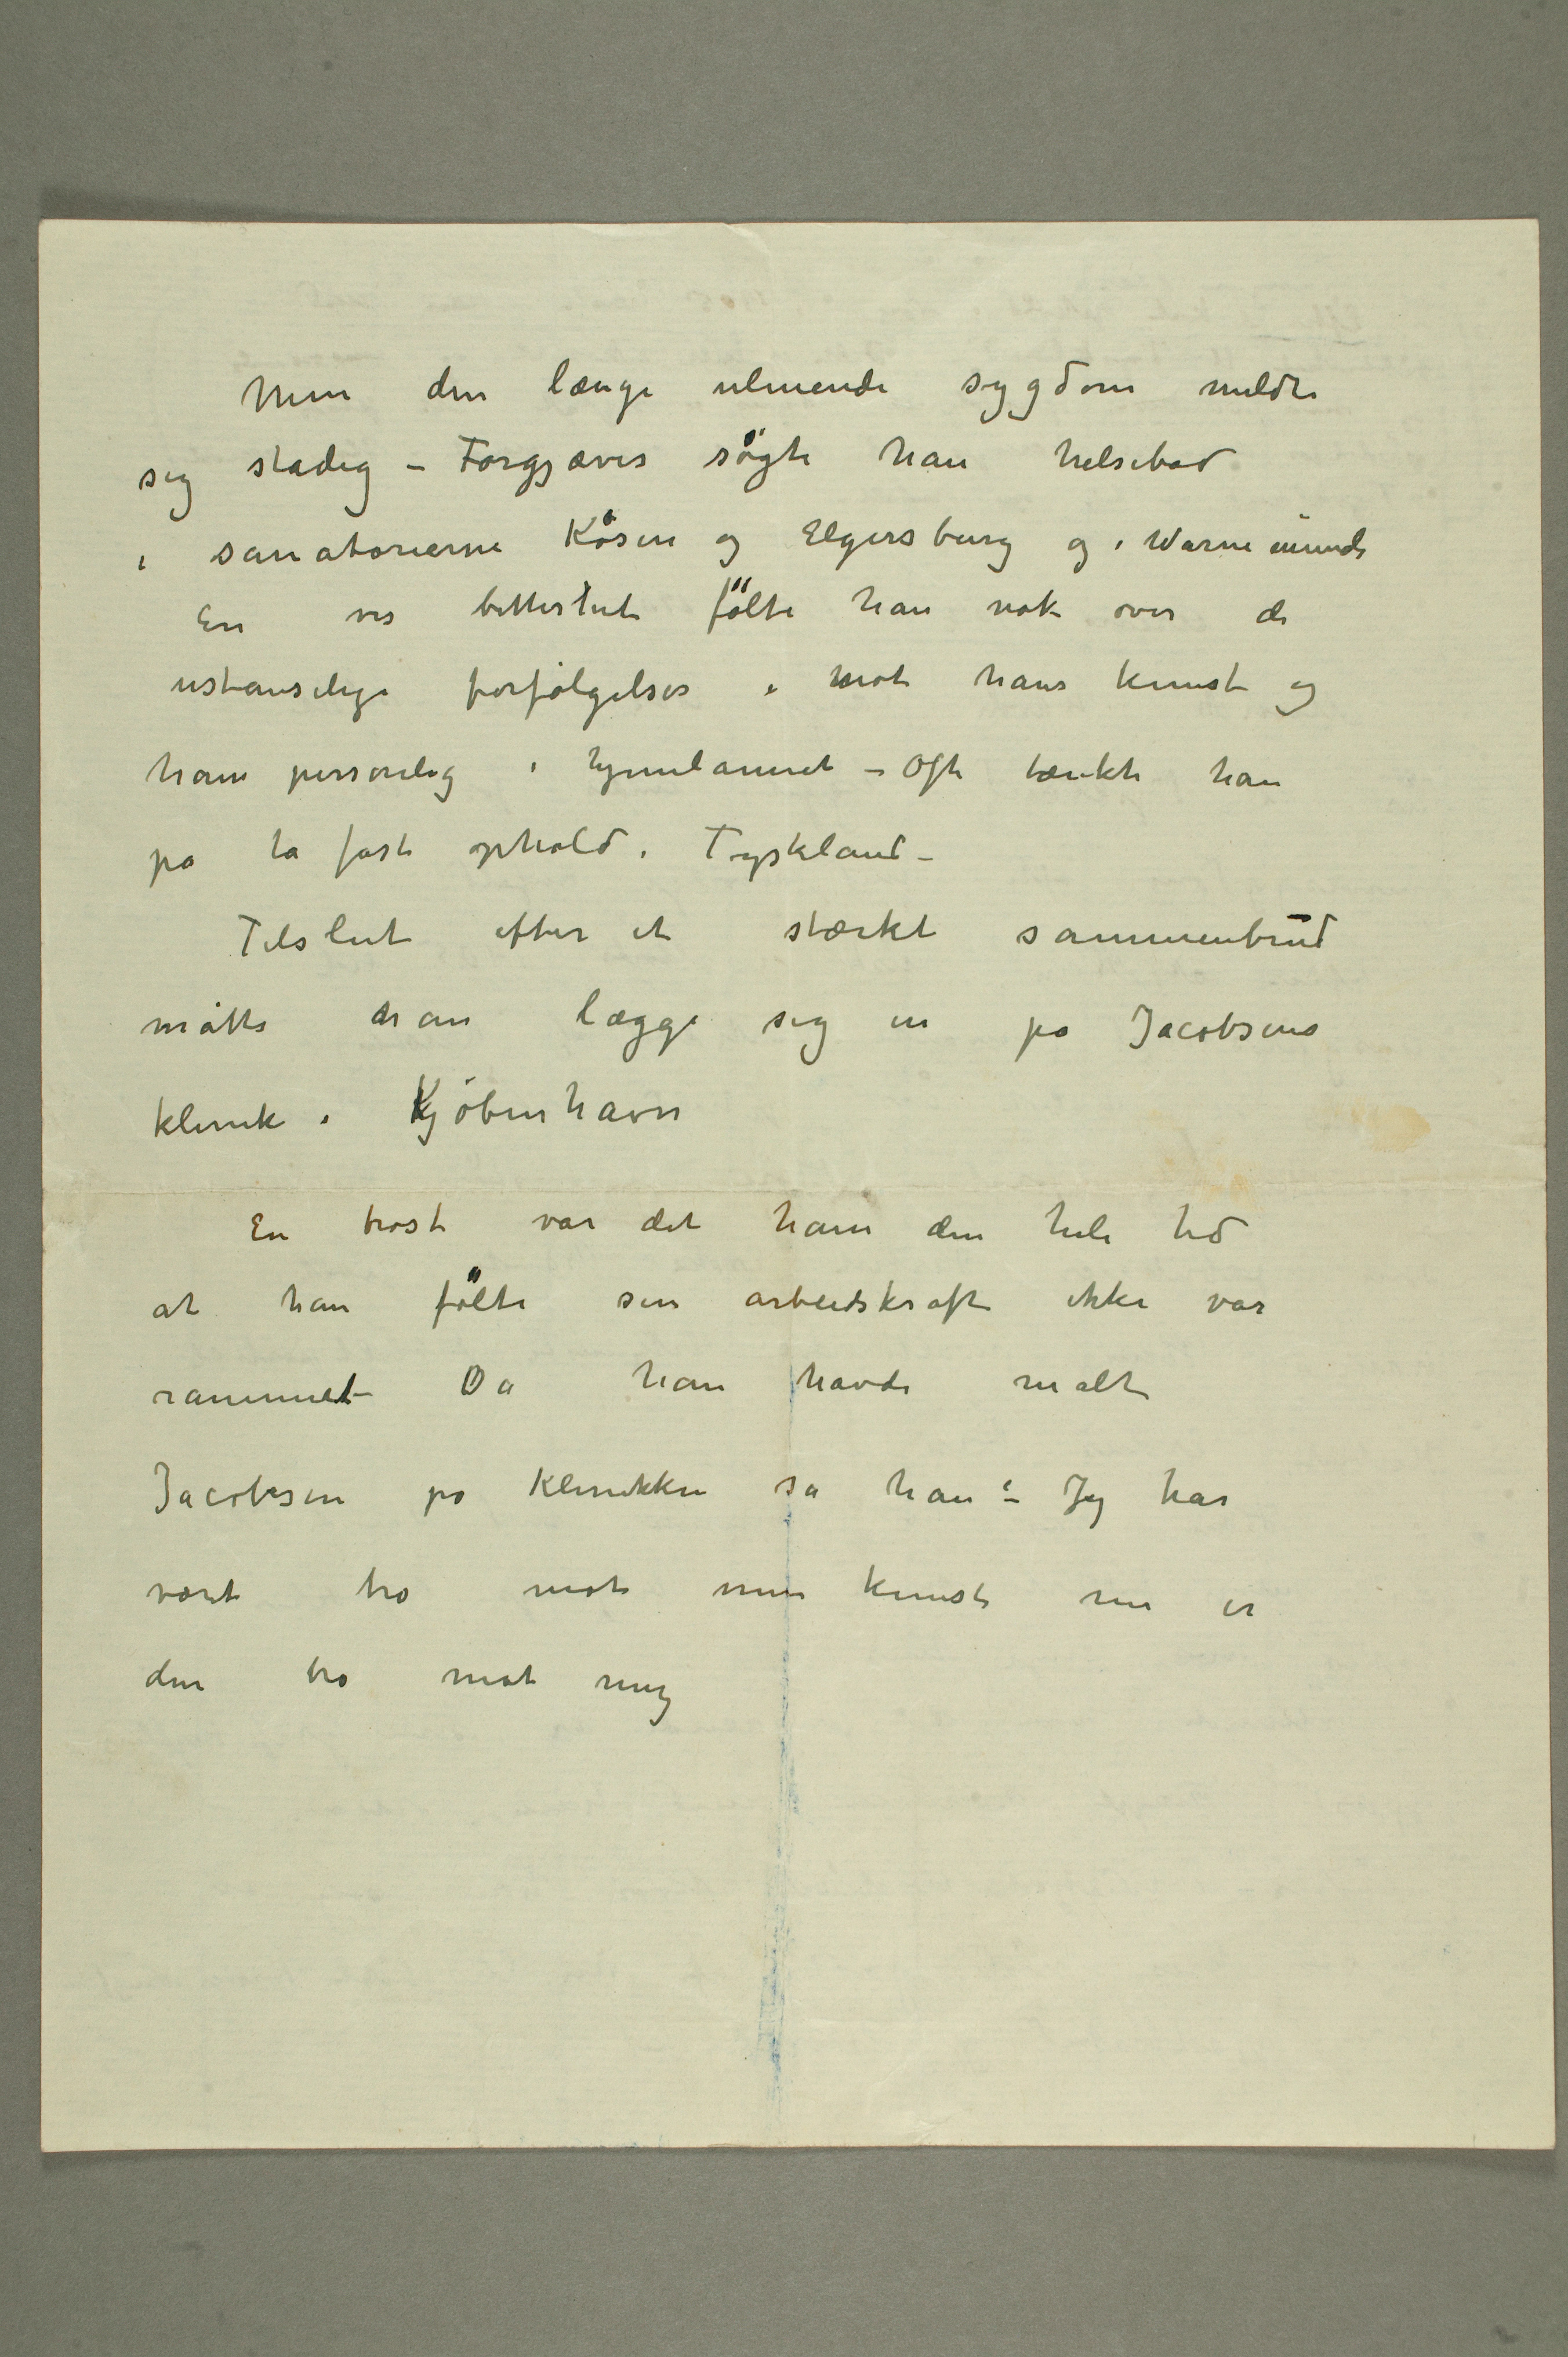 Men den længe ulmende sygdom meldte
sig stadig – Forgjæves søgte han helsebod
i sanatorierne Kösen og Elgersburg og i Warnemünde
En vis bitterhet følte han nok over de
ustanselige forfølgelser i mot hans kunst og
ham personlig i hjemlannet – Ofte tænkte han
på ta fast ophold i Tyskland –
Tilslut efter et stærkt sammenbrud
måtte han lægge sig in på Jacobsens
klinik i Kjøbenhavn
En trøst var det ham den hele tid
at han følte sin arbeidskraft ikke var
rammet Da han havde malt
Jacobsen på Klinikken sa han: – Jeg har
vært tro mot min kunst nu er
den tro mot mig